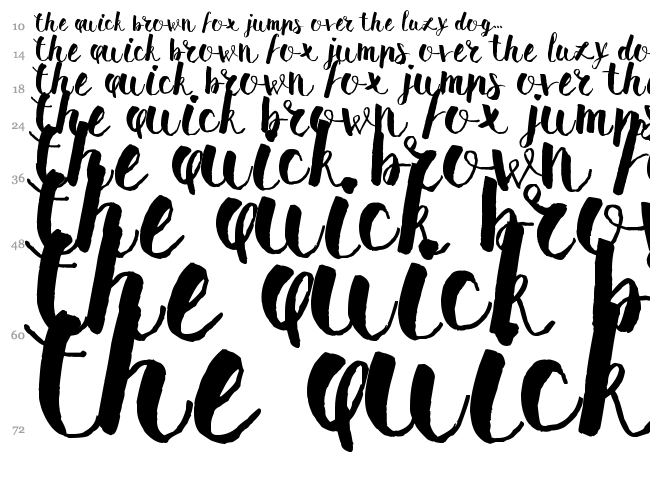 10 the quick brown fox jumps over the lazy dog...
14 the quick brown fox jumps over the lazy do
18 the quick brown fox jumps over the
24 the quick brown fox jump
36 the quick brown
48 the quick brow
60 the quick
72 the quick